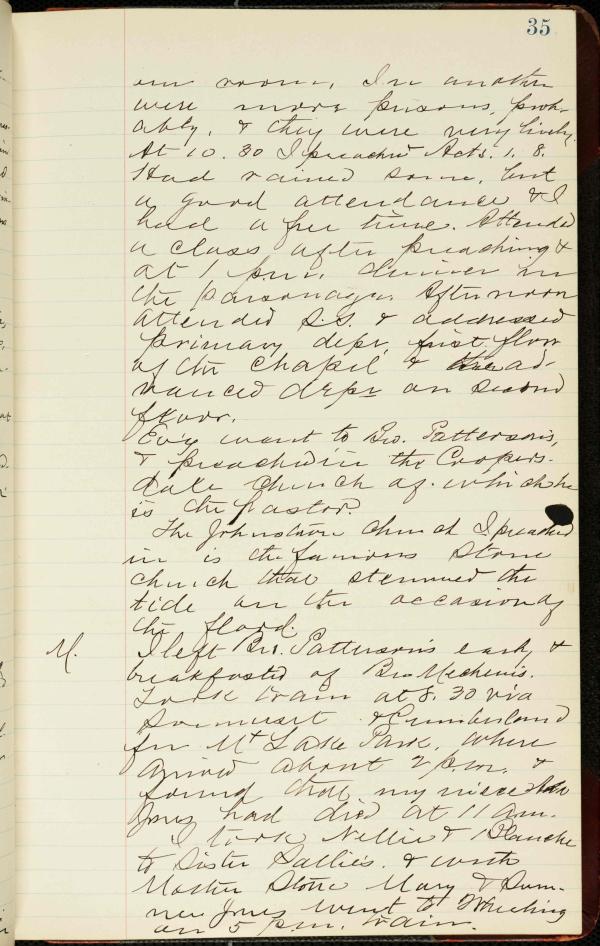 35
our room, In another
were more prisons, prob-
ably, & they were very lively.
At 10.30 I preached Acts. 1. 8.
Had rained some, but
a good attendance & I
had a free time. Attended
a class after preaching &
at 1 p.m. dinner in
the parsonage. Afternoon
attended S.S. & addressed
primary dept, first floor
of the Chapel & the ad-
vanced dept on second
floor.
Evg went to Bro. Patterson's,
& preached in the Coopers-
dale church of which he
is the Pastor.
The Johnstown church I preached
in is the famous Stone
church that stemmed the
tide on the occasion of
the flood.
M. I left Bro. Patterson's early &
breakfasted at Bro
Took train at 8.30 via
Somerset & Cumberland
for Mt Lake Park. Where
arrived about 2 p.m. &
found that my niece
Jones had died at 11 a.m.
I took Nellie & Blanche
to Sister Sallie's. & with
Mother Stone Mary & Sum-
ner Jones went to Wheeling
on 5 p.m. train.